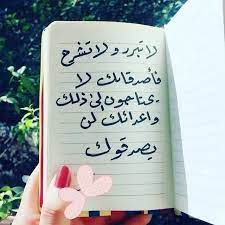 لا تبرر ولا تشرح
فأصدقائك لا
يحتاجون إلى ذلك
وأعدائك لن
يصدقوك